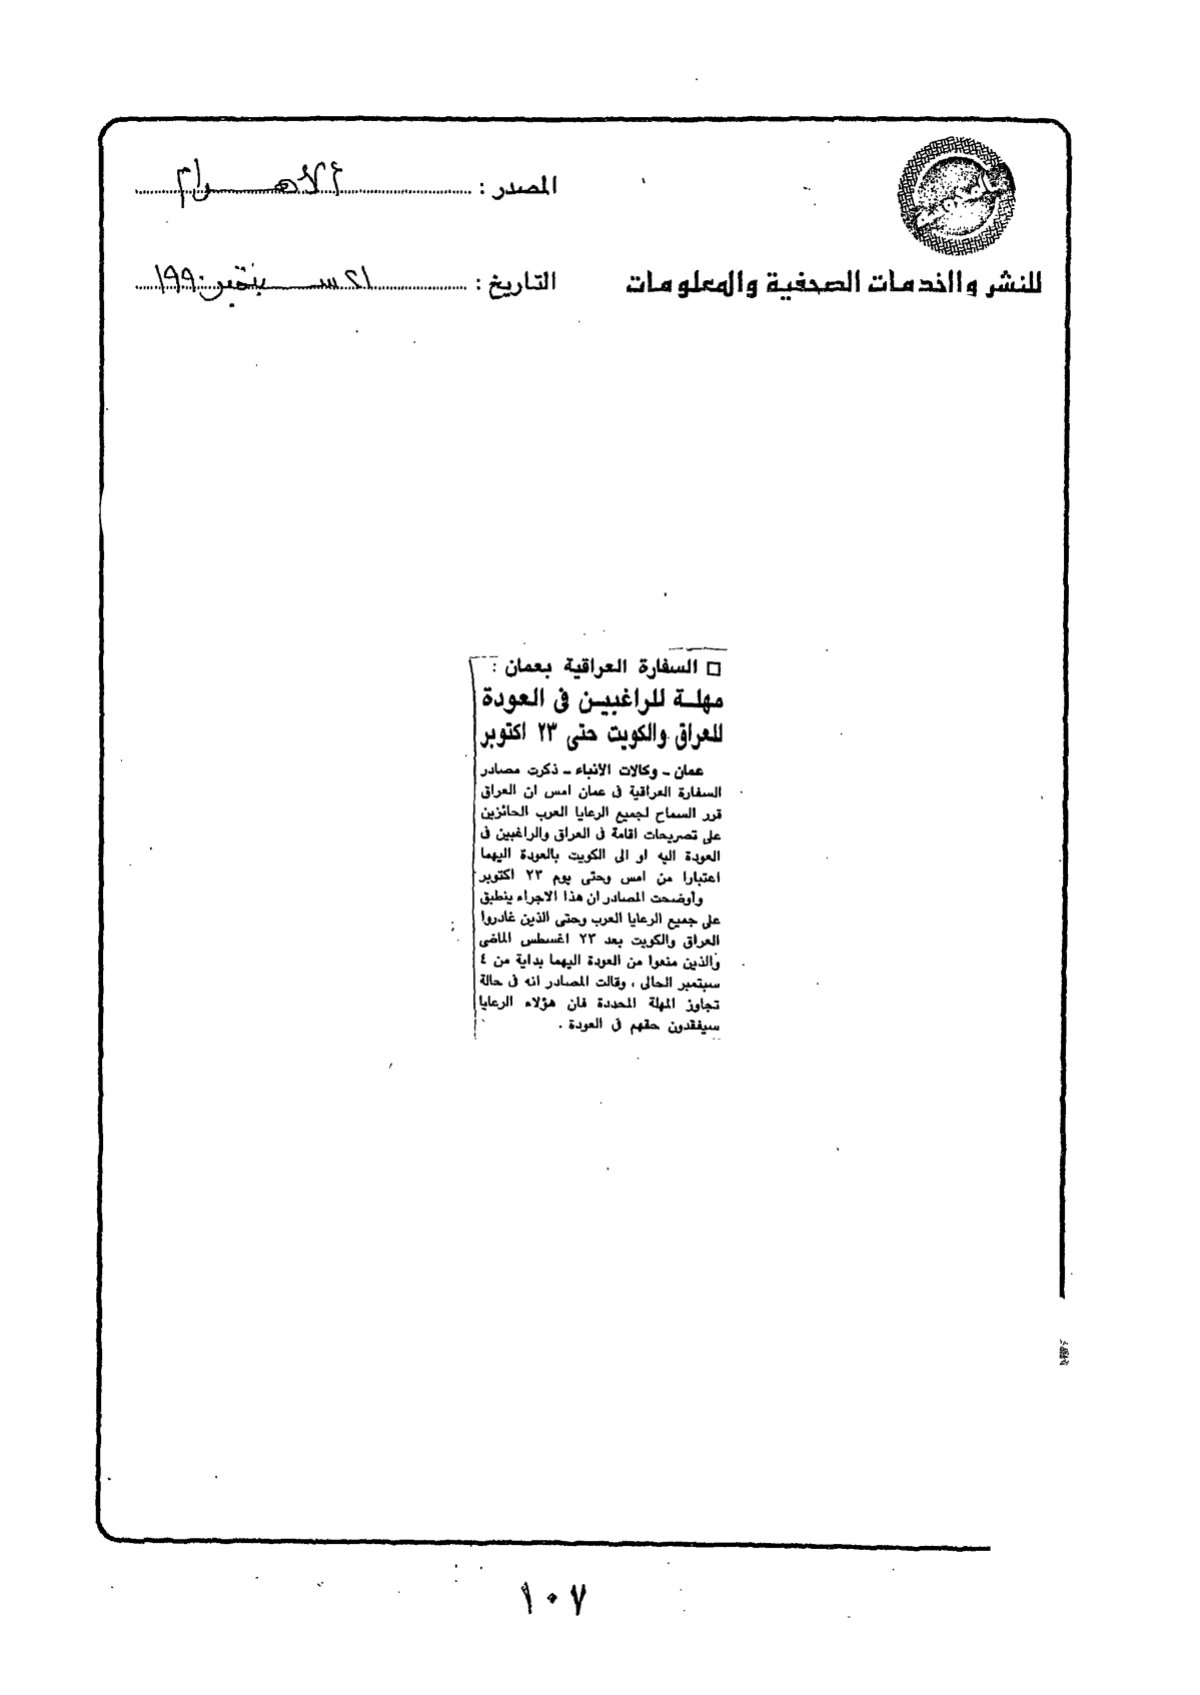 المصدر : الأهـــرام
للنشر والخدمات الصحفية والمعلومات
التاريخ : ٢١ ســـبتمبر ١٩٩٠
□ السفارة العراقية بعمان :
مهلـة للراغبيـن فى العودة
للعراق والكويت حتى ٢٣ اكتوبر
عمان ـ وكالات الأنباء ـ ذكرت مصادر
السفارة العراقية فى عمان امس ان العراق
قرر السماح لجميع الرعايا العرب الحائزين
على تصريحات اقامة فى العراق والراغبين فى
العودة اليه او الى الكويت بالعودة اليهما
اعتبارا من امس وحتى يوم ٢٣ اكتوبر
وأوضحت المصادر ان هذا الاجراء ينطبق
على جميع الرعايا العرب وحتى الذين غادروا
العراق والكويت بعد ٢٣ اغسطس الماضى
والذين منعوا من العودة اليهما بداية من ٤
سبتمبر الحالى ، وقالت المصادر انه فى حالة
تجاوز المهلة المحددة فان هؤلاء الرعايا
سيفقدون حقهم فى العودة .
١٠٧